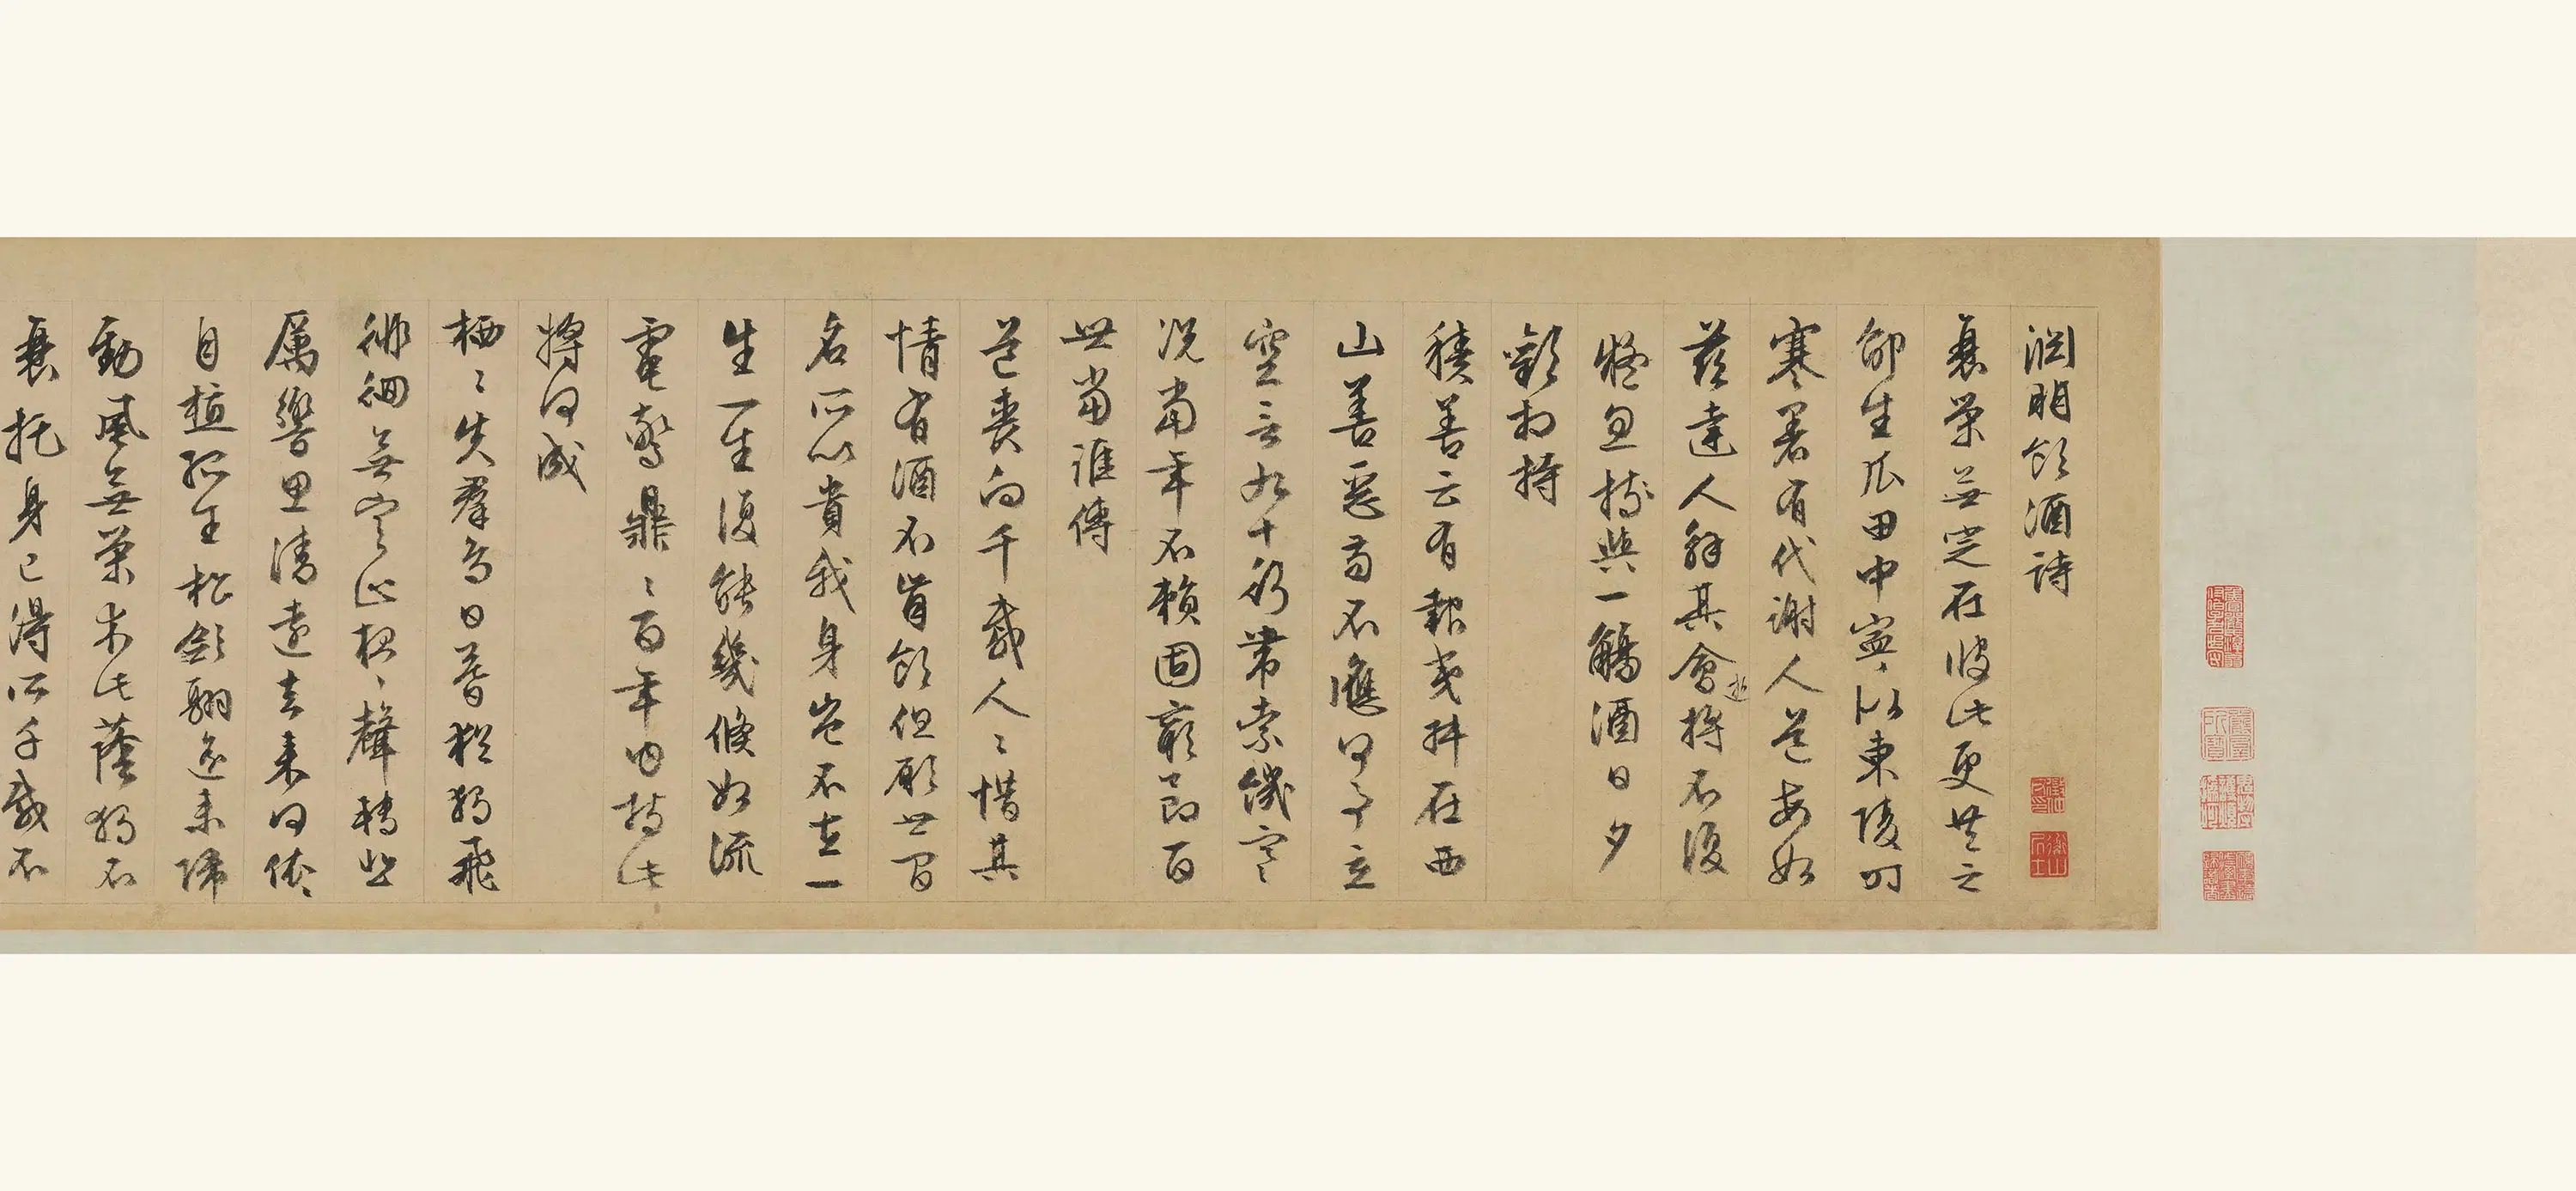 淵明飲酒詩
衰榮無定在彼此更共之
邵生瓜田中寧似東陵時
寒暑有代謝人道每如
茲達人解其會逝將不復
疑忽持與一觴酒日夕
歡相持
積善云有報夷叔在西
山善惡苟不應何事立
空言九十行帶索饑寒
況當年不賴固窮節百
世當誰傳
道喪向千載人〻惜其
情有酒不肯飲但願世間
名所以貴我身豈不在一
生一生復能幾倏如流
電驚鼎〻百年內持此
將何成
栖〻失羣鳥日暮猶獨飛
徘徊無定止夜〻聲轉悲
厲響思清遠去來何依〻
自植孤生松斂翮遙來歸
勁風無榮木此蔭獨不
衰托身已得所千載不